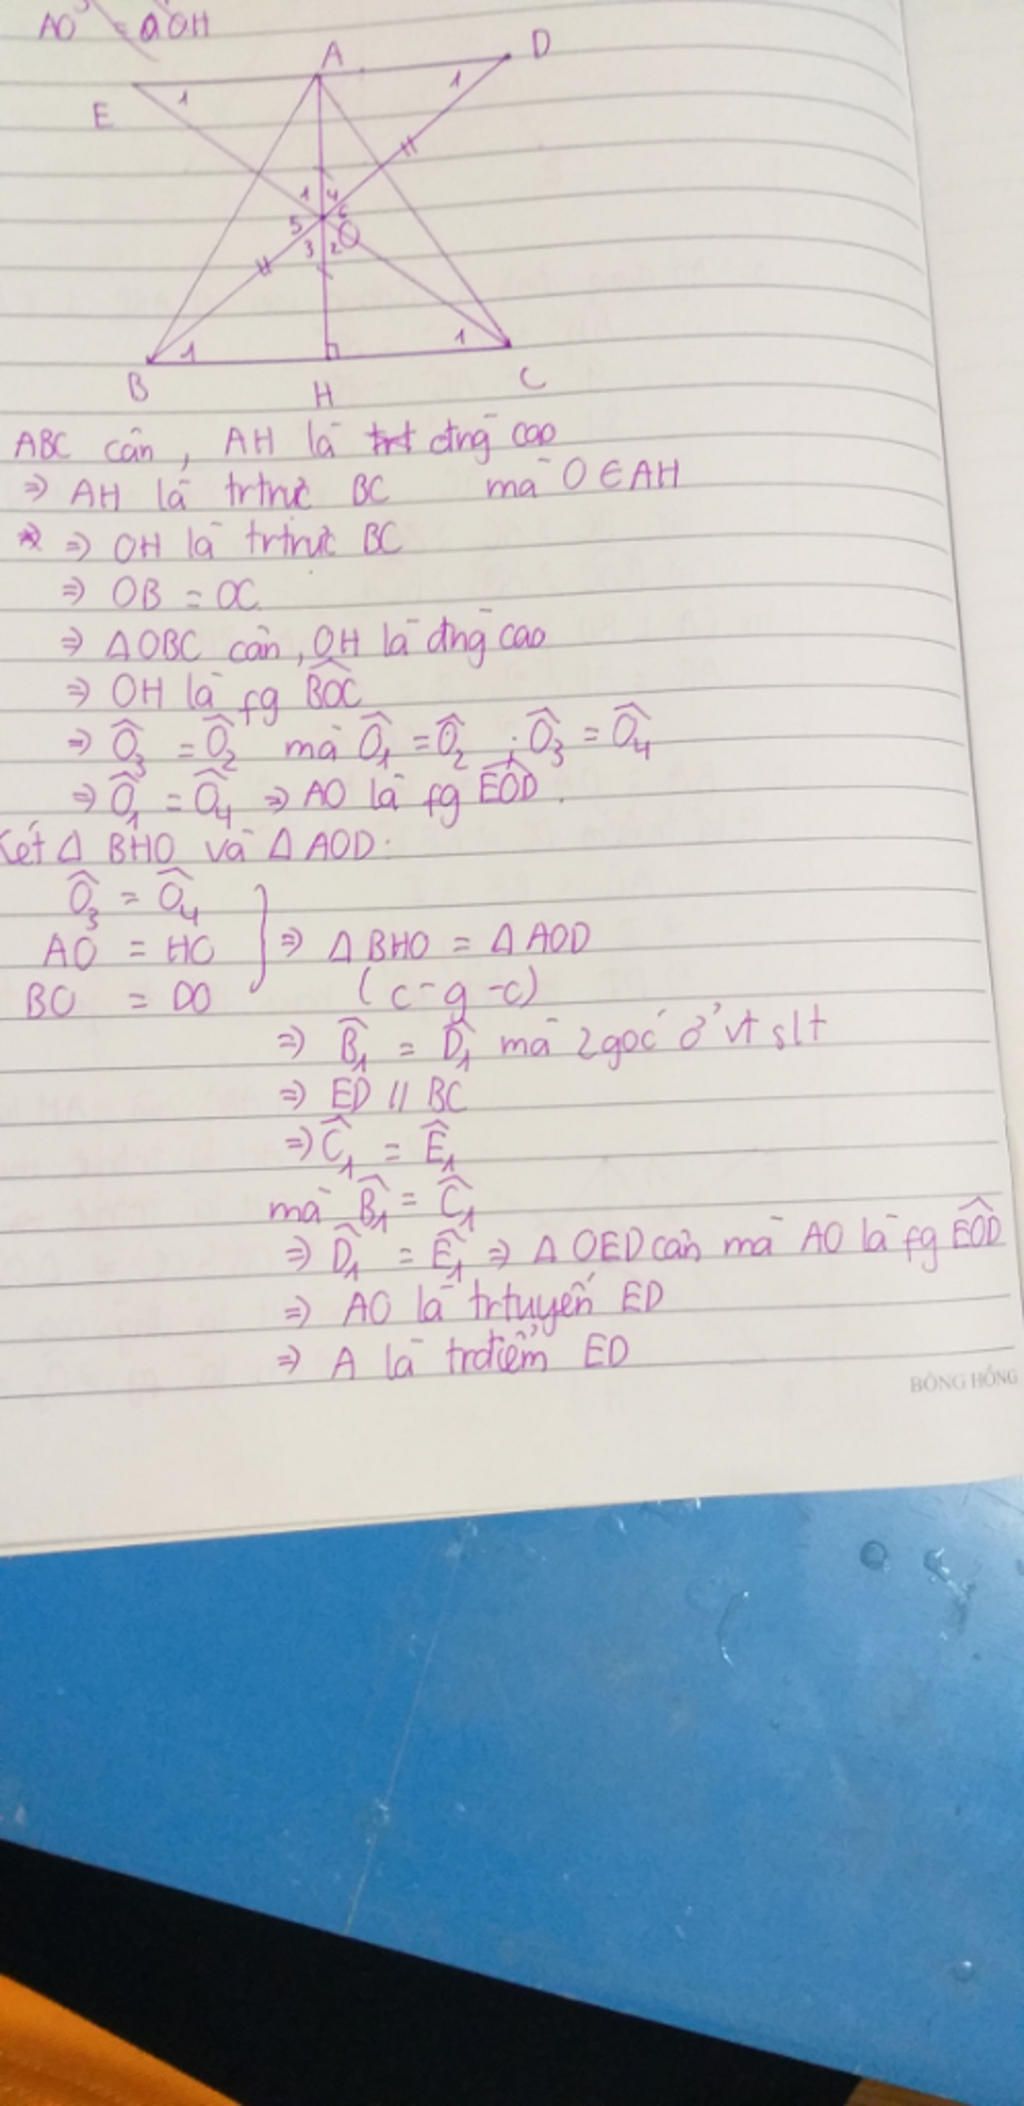 AO = OH
A
D
E
1
1
1 4
5 6
3 2 O
1
1
B
H
C
ABC cân, AH là đng cao
⇒ AH là trtrực BC mà O ∈ AH
⇒ OH là trtrực BC
⇒ OB = OC
⇒ ΔOBC cân, OH là đng cao
⇒ OH là fg B̂OC
⇒ Ô₃ = Ô₂ mà Ô₁ = Ô₂ ; Ô₃ = Ô₄
⇒ Ô₁ = Ô₄ ⇒ AO là fg ÊOD.
Xét Δ BHO và Δ AOD:
Ô₃ = Ô₄
AO = HO } ⇒ Δ BHO = Δ AOD
BO = DO (c-g-c)
⇒ B̂₁ = D̂₁ mà 2 góc ở vt slt
⇒ ED // BC
⇒ Ĉ₁ = Ê₁
mà B̂₁ = Ĉ₁
⇒ D̂₁ = Ê₁ ⇒ Δ OED cân mà AO là fg ÊOD
⇒ AO là trtuyến ED
⇒ A là trđiểm ED
BÔNG HỒNG